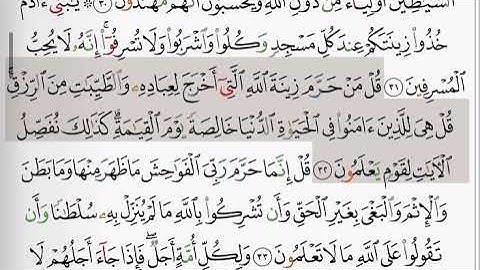 ٱلشَّيَٰطِينَ أَوۡلِيَآءَ مِن دُونِ ٱللَّهِ وَيَحۡسَبُونَ أَنَّهُم مُّهۡتَدُونَ ٣٠ ۞ يَٰبَنِيٓ ءَادَمَ
خُذُواْ زِينَتَكُمۡ عِندَ كُلِّ مَسۡجِدٖ وَكُلُواْ وَٱشۡرَبُواْ وَلَا تُسۡرِفُوٓاْۚ إِنَّهُۥ لَا يُحِبُّ
ٱلۡمُسۡرِفِينَ ٣١ قُلۡ مَنۡ حَرَّمَ زِينَةَ ٱللَّهِ ٱلَّتِيٓ أَخۡرَجَ لِعِبَادِهِۦ وَٱلطَّيِّبَٰتِ مِنَ ٱلرِّزۡقِۚ
قُلۡ هِيَ لِلَّذِينَ ءَامَنُواْ فِي ٱلۡحَيَوٰةِ ٱلدُّنۡيَا خَالِصَةٗ يَوۡمَ ٱلۡقِيَٰمَةِۗ كَذَٰلِكَ نُفَصِّلُ
ٱلۡأٓيَٰتِ لِقَوۡمٖ يَعۡلَمُونَ ٣٢ قُلۡ إِنَّمَا حَرَّمَ رَبِّيَ ٱلۡفَوَٰحِشَ مَا ظَهَرَ مِنۡهَا وَمَا بَطَنَ
وَٱلۡإِثۡمَ وَٱلۡبَغۡيَ بِغَيۡرِ ٱلۡحَقِّ وَأَن تُشۡرِكُواْ بِٱللَّهِ مَا لَمۡ يُنَزِّلۡ بِهِۦ سُلۡطَٰنٗا وَأَن
تَقُولُواْ عَلَى ٱللَّهِ مَا لَا تَعۡلَمُونَ ٣٣ وَلِكُلِّ أُمَّةٍ أَجَلٞۖ فَإِذَا جَآءَ أَجَلُهُمۡ لَا